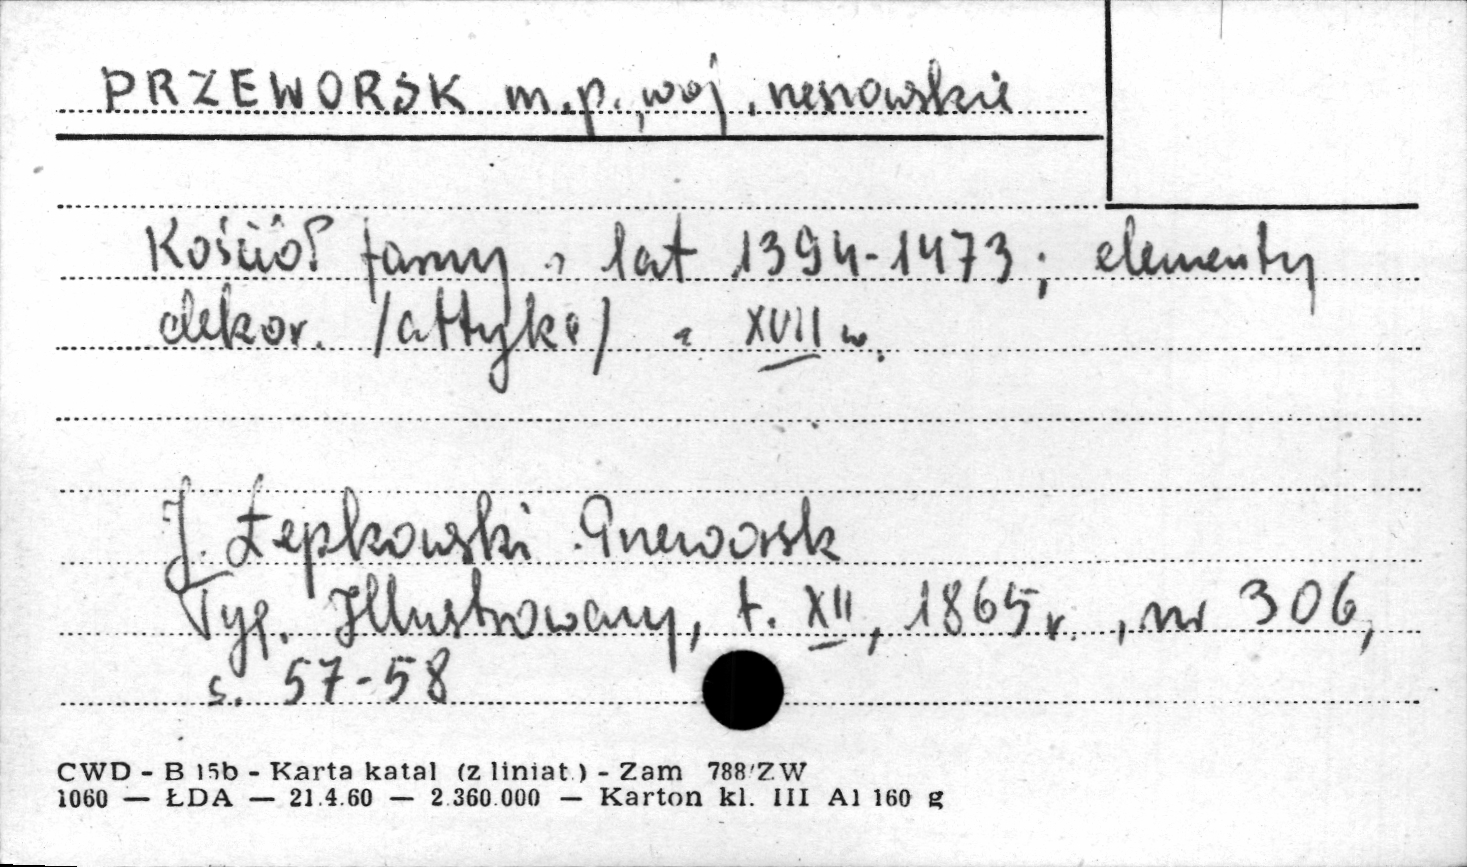 PRZEWORSK m.p., woj. rzeszowskie
Kościół farny z lat 1394-1473; elementy
dekor. /attyka/ z XVII w.
J. Łepkowski Przeworsk
Tyg. Illustrowany, t. XII, 1865 r., nr 306,
s. 57-58
CWD - B 15b - Karta katal (z liniat.) - Zam 788/ZW
1060 — ŁDA — 21.4.60 — 2.360.000 — Karton kl. III A1 160 g